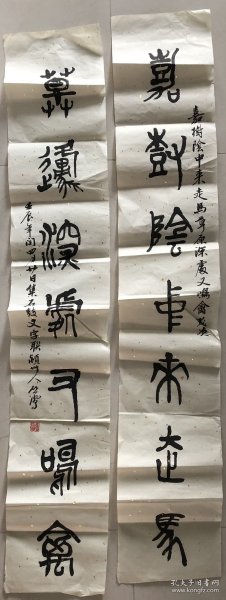 嘉樹陰中来走馬
嘉樹陰中来走馬草原深處又鳴禽
草邍深處又鳴禽
壬辰年閏四月廿日集石鼓文字聯
孔夫子旧书网
www.kongfz.com